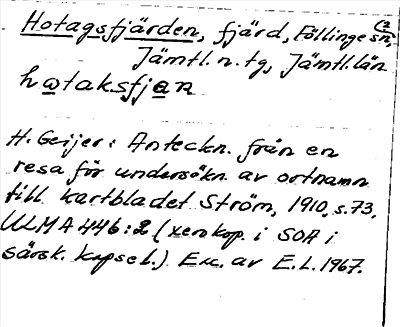 Hotagsfjärden, fjärd, Föllinge sn, (2
Jämtl. n. tg, Jämtl. län
hωtaksfjæn
H. Geijer: Anteckn. från en
resa för undersökn. av ortnamn
till kartbladet Ström, 1910, s. 73,
ULMA 446:2 (xerokop. i SOA i
särsk. kapsel.) Exc. av E.L. 1967.